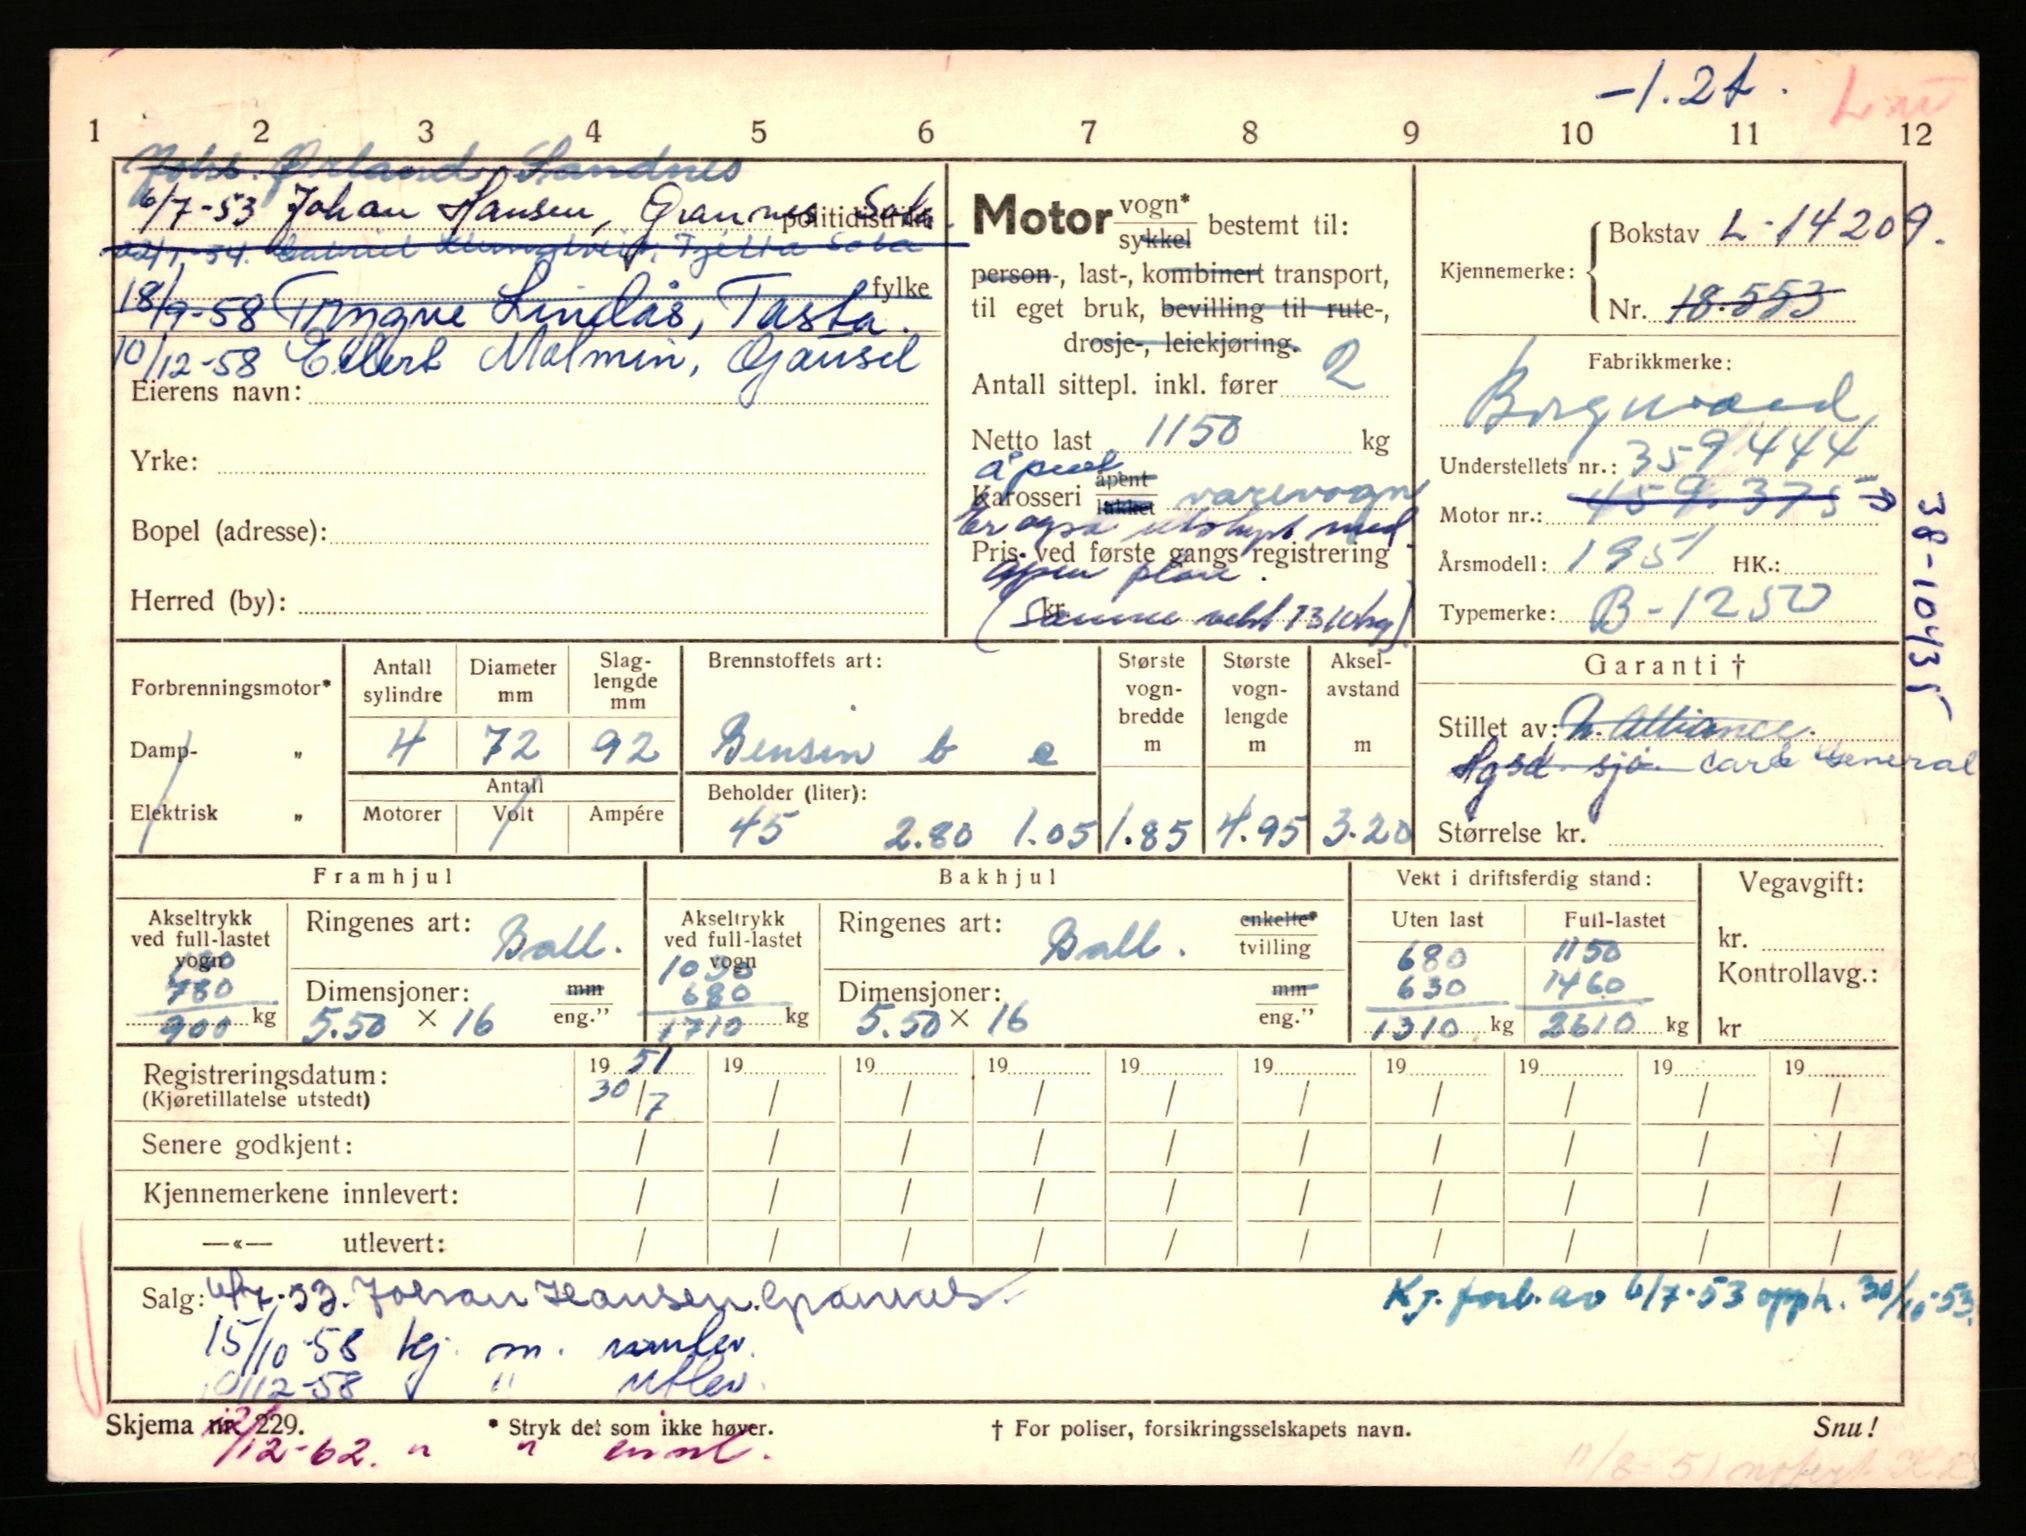 -1.2t.
1 2 3 4 5 6 7 8 9 10 11 12
Johs. Ørland, Sandnes
6/7-53 Johan Hansen, Grannes Sola.
politidistrikt
fylke
18/9-58 Trygve Lindås, Tasta.
10/12-58 Eilert Malmin, Gausel
Eierens navn:
Yrke:
Bopel (adresse):
Herred (by):
Motor vogn* sykkel bestemt til:
person-, last-, kombinert transport,
til eget bruk, bevilling til rute-,
drosje-, leiekjøring.
Antall sittepl. inkl. fører 2
Netto last 1150 kg
åpent
Karosseri åpent lukket varevogn
Er også utstyrt med
Pris ved første gangs registrering
åpen plan.
kr.
(Samme vekt 1310 kg)
Kjennemerke:
Bokstav L-14209.
Nr. 18.553
Fabrikkmerke:
Borgward
Understellets nr.: 359444
Motor nr.: 459.375
38-10435
Årsmodell: 1951 HK.:
Typemerke: B-1250
Forbrenningsmotor*
Damp- „
Elektrisk „
Antall sylindre 4
Diameter mm 72
Slag-lengde mm 92
Antall
Motorer Volt Ampére
Brennstoffets art:
Bensin b c
Beholder (liter):
45 2.80 1.05
Største vogn-bredde m 1.85
Største vogn-lengde m 4.95
Aksel-avstand m 3.20
Garanti †
Stillet av: N. Alliance.
Hgsd sjø Care General
Størrelse kr.
Framhjul
Akseltrykk ved full-lastet vogn
780
900 kg
Ringenes art: Ball.
Dimensjoner: mm eng."
5.50 × 16
Bakhjul
Akseltrykk ved full-lastet vogn
1030
680
1710 kg
Ringenes art: Ball. enkelte* tvilling
Dimensjoner: mm eng."
5.50 × 16
Vekt i driftsferdig stand:
Uten last Full-lastet
680 1150
630 1460
1310 kg 2610 kg
Vegavgift:
kr.
Kontrollavg.:
kr
Registreringsdatum: 19 51 19 19 19 19 19 19 19 19 19
(Kjøretillatelse utstedt) 30/7 / / / / / / / / /
Senere godkjent: / / / / / / / / / /
Kjennemerkene innlevert: / / / / / / / / / /
—«— utlevert: / / / / / / / / / /
Salg: 6/7-53. Johan Hansen. Grannes.
Kj. forb. av 6/7-53 opph. 30/10-53.
15/10-58 kj. m. innlev.
10/12-58 " utlev.
Skjema nr. 229.
* Stryk det som ikke høver.
† For poliser, forsikringsselskapets navn.
Snu!
/12-62. " " innl.
11/8-51 notert